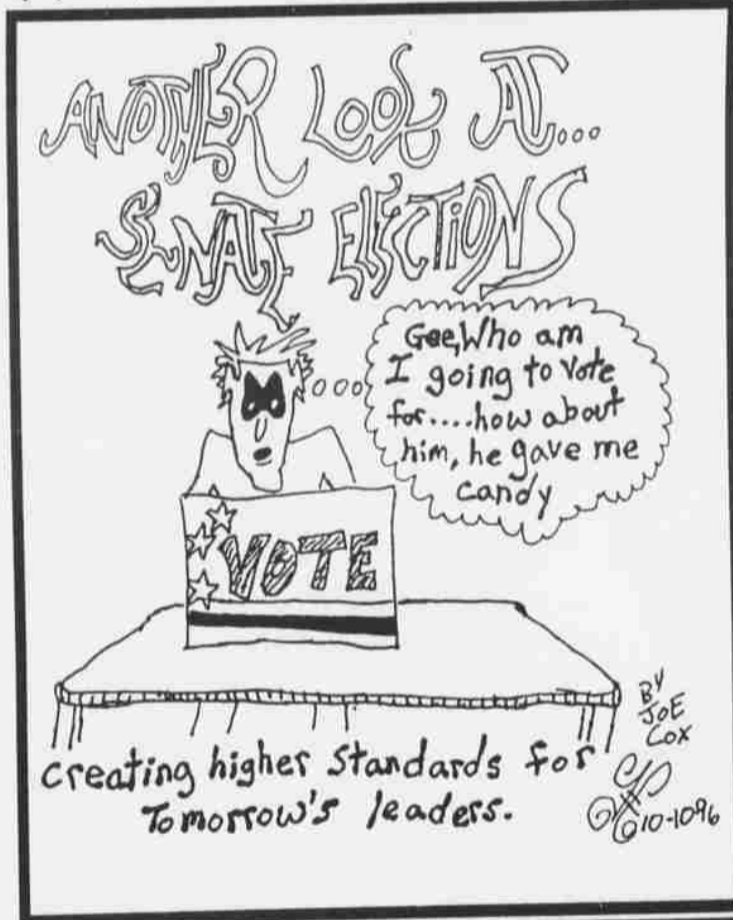 ANOTHER LOOK AT...
SENATE ELECTIONS
Gee, Who am
I going to vote
for....how about
him, he gave me
candy
VOTE
creating higher standards for
Tomorrow's leaders.
BY
JOE
COX
10-10-96